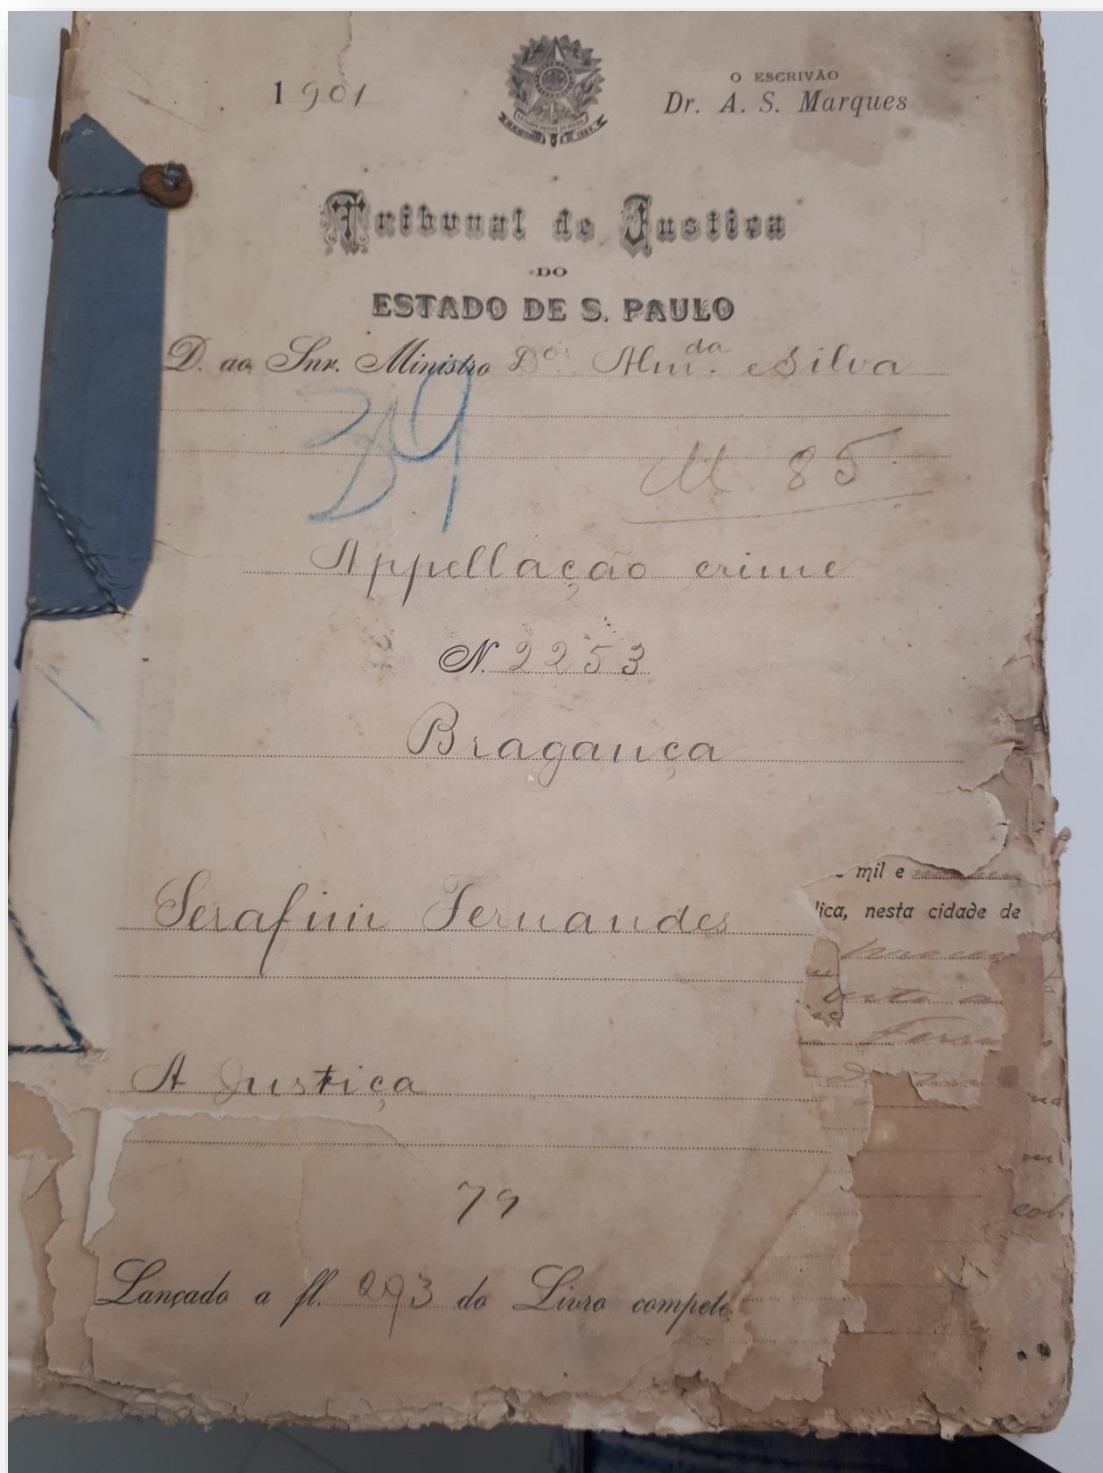 1901
O ESCRIVÃO
Dr. A. S. Marques
Tribunal de Justiça
DO
ESTADO DE S. PAULO
D. ao Snr. Ministro Dor Almda e Silva
39
M 85
Appellação crime
N. 2253
Bragança
mil e
lica, nesta cidade de
Serafim Fernandes
A Justiça
79
Lançado a fl. 293 do Livro compete